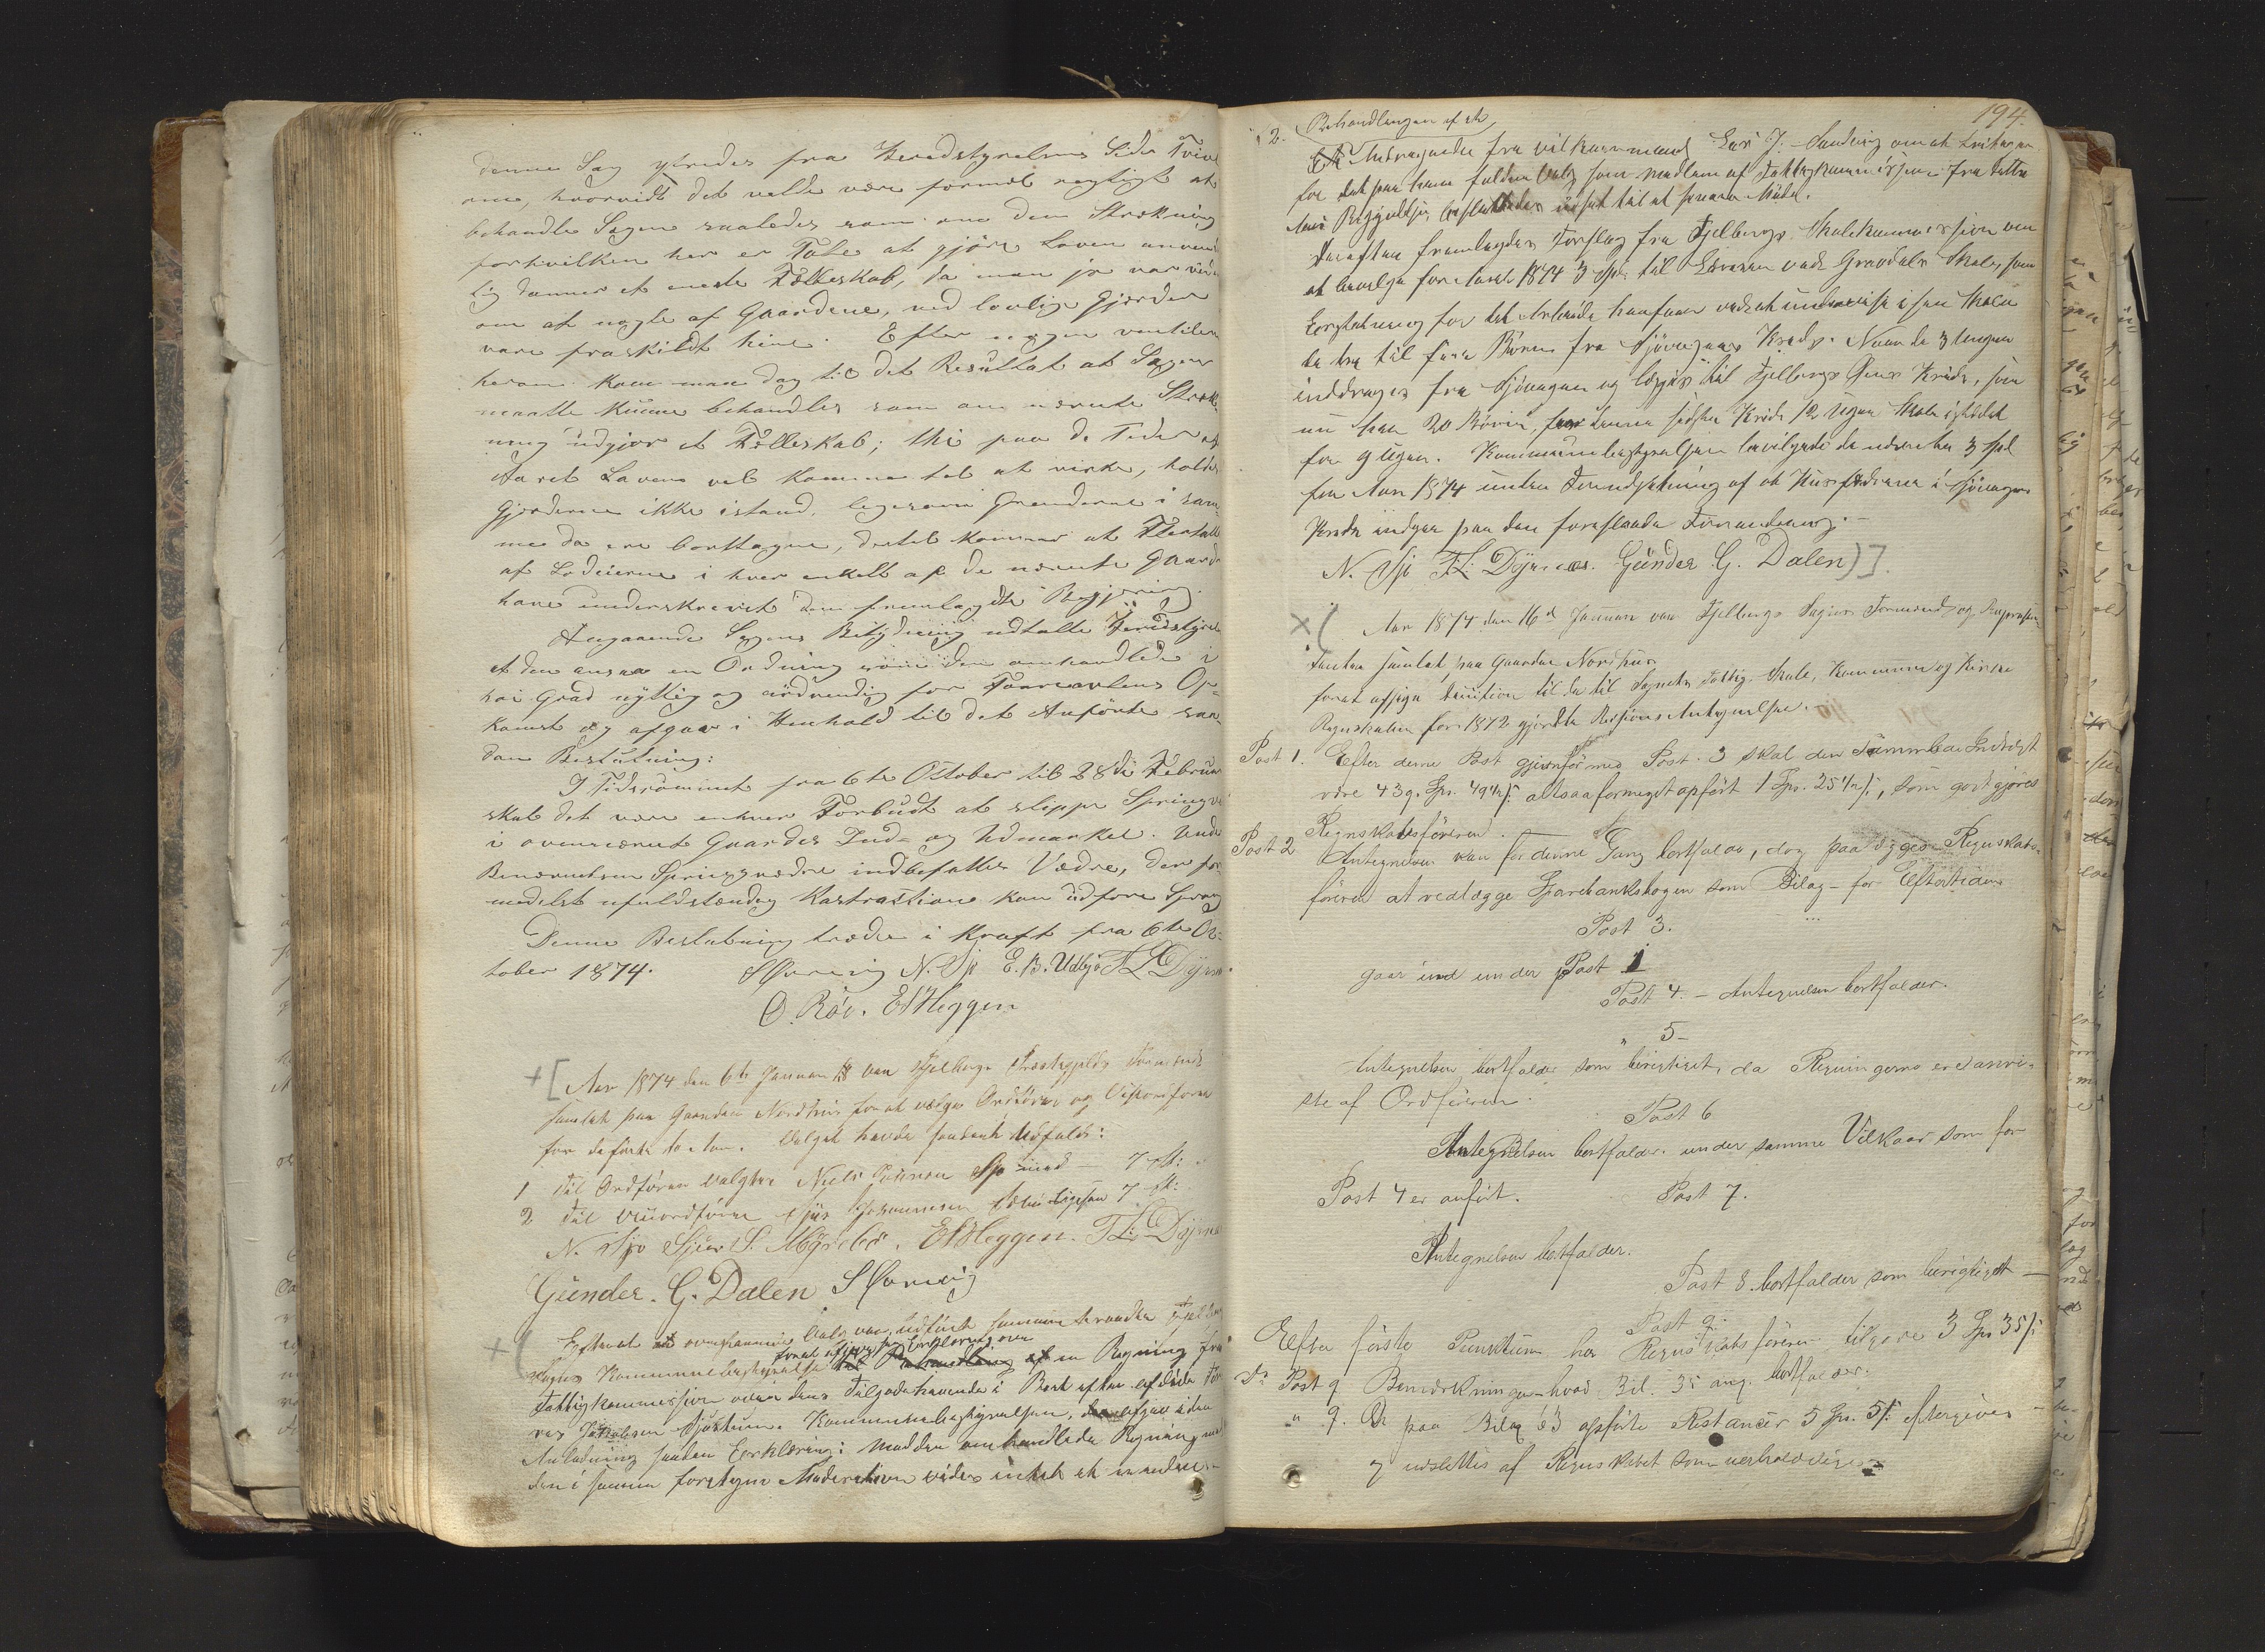 denne Sag ytredes fra Heredstyrelsens Side Tvivl
om, hvorvidt det vilde være formelt rigtigt at
behandle Sagen saaledes som om den Strækning
forhvilken her er Tale at gjøre Loven anvend
lig danner et eneste Fælleskab, da man jo var vidende
om at nogle af Gaardene, ved lovlige Gjærder
vare fraskildt hine. Efter nogen ventileren
herom kom man dog til det Resultat at Sagen
maatte kunne behandles som om nævnte Stræk-
ning udgjør et Fælleskab; thi paa de Tider af
Aaret Loven vil komme til at virke, holdes
Gjærderne ikke istand, ligesom Grinderne i sam-
me da ere borttagne, dertil kommer at Flertallet
af Lodeierne i hver enkelt af de nævnte Gaarde
have underskrevet den fremlagte Begjæring.
Angaaende Sagens Betydning udtalte Heredstyrelsen
at den ansaa en Ordning som den omhandlede i
høi Grad nyttig og nødvendig for Faareavlens Op-
komst og afgav i Henhold til det Anførte saa-
dan Beslutning:
I Tidsrommet fra 6te Oktober til 28de Februar
skal det være enhver Forbudt at slippe Springvæ
i ovennævnt Gaardes Ind- og Udmarker. Under
Benævnelsen Springvædre indbefattes Vædre, der for-
medelst ufuldstændig Kastration kan udføre Spring
Denne Beslutning træder i Kraft fra 6te Ok-
tober 1874. N. Sjo E. B. Udbjo T. L. Dyrnæs
O. Røv. E Heggen
+ [ Aar 1874 den 6te Januar var Fjelbergs Præstegjelds Formænd
samlet paa Gaarden Nordhus for at vælge Ordfører og Viseordfører
for de første to Aar. Valget havde saadant Udfald:
1 Til Ordfører valgtes Niels Sjo med – 7 St:
2 Til viseordfører Sjur Johannesen 7 St:
N. Sjo Sjur S. E Heggen. T. L. Dyrnæs
Gunder. G. Dalen
+( Efterat ovenstaaende Valg var udført sammentraadte Fjelbergs
Sogns Kommunebestyrelse for at afgive sin Erklæring over en Regning fra
Fattigkommissionen over dens Tilgodehavende i Boet efter afdøde
Kommunebestyrelsen, afgav i den
Anledning saadan Erklæring: Mod den omhandlede Regning med
den i samme foretagne Moderation vides intet at erindre. –
194.
2. Behandlingen af et
Andragende fra vilkaarsmand Lars J. Sandvig om at fritages
for det paa ham faldne Valg som medlem af Fattigkommissionen fra dette
Aars Begyndelse besluttedes udsat til et senere Møde.
Derefter fremlagdes Forslag fra Fjelbergs Skolekommission om
at bevilge for Aaret 1874 3 Spd. til Læreren ved Gravdals Skole, som
Erstatning for det Arbeide han faar ved at undervise i sin Skole
de tre til fire Børn fra Sjovegnes Kreds. Naar de 3 Uger
inddrages fra Sjovegnen og lægges til Fjelbergs Øens Kreds, som
nu har 20 Børn, faar denne sidste Kreds 12 Uger Skole istedet
for 9 Uger. Kommunebestyrelsen bevilgede de nævnte 3 Spd
for Aar 1874 under Forudsætning af at Husfædrene i Sjovegnes
Kreds indgaa paa den foreslaaede Forandring. –
N. Sjo T. L. Dyrnæs. Gunder G. Dalen )]
×( Aar 1874 den 16d Januar var Fjelbergs Sogns Formænd og Repræsen-
tanter samlet paa Gaarden Nordhus
for at afsige Decision til de til Sognets Fattig- Skole, Kommune og Kirke
Regnskaber for 1872 gjorte Revisions Antegnelser.
Post 1. Efter denne Post gjennført med Post 3 skal den Summerede Indtægt
være 439. Sp. 49½ ß altsaa formeget opført 1 Sp. 25½ ß, som godtgjøres
Regnskabsføreren.
Post 2 Antegnelsen kan for denne Gang bortfalde, dog paalægges Regnskabs-
føreren at vedlægge Sparebanksbogen som Bilag – for Eftertiden
Post 3.
gaar ind under Post 1
Post 4. – Antegnelsen bortfalder.
" 5 –
Antegnelsen bortfalder som berigtiget, da Regningerne ere anvi-
ste af Ordføreren.
Post 6
Antegnelsen bortfalder under samme Vilkaar som for
Post 4 er anført. Post 7.
Antegnelsen bortfalder.
Post 8. bortfalder som berigtiget –
Post 9.
Efter første Punktum har Regnskabsføreren tilgode 3 Sp 35 ß
Do Post 9 Bemærkninger – hvad Bil. 35 ang. bortfalder.
" 9. De paa Bilag 63 opførte Restancer 5 Sp. 5 ß eftergives
og udslettes af Regnskabet som uerholdelige. –